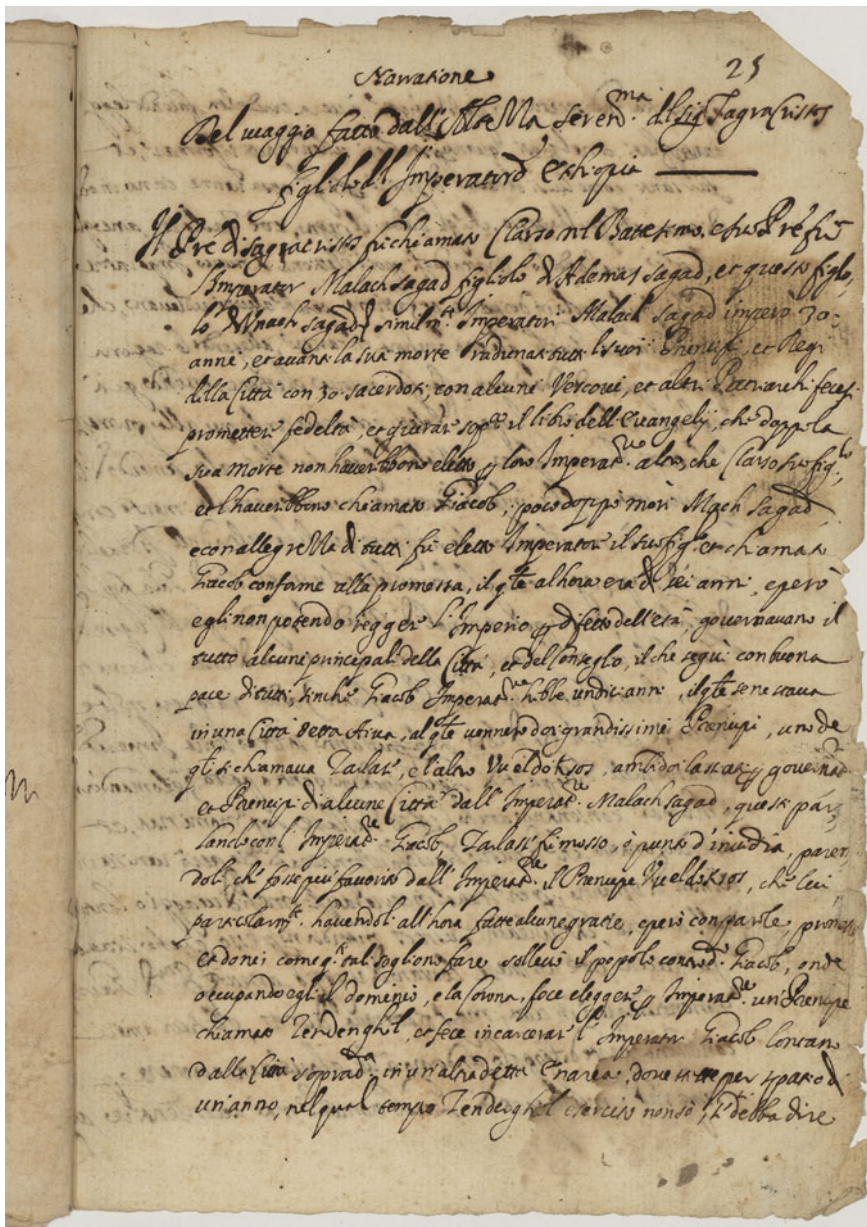 Narratione
25
Del viaggio fatto dall'Alteza Seren.ma del sig.r Sagra Cristos
figliolo dell'Imperatore d'Ethiopia
Il Pre di sagracristos fu chiamato Clarso nel Batesmo, e suo Pre fu
l'Imperator Malach sagad figliolo di Ademas sagad, et questo figlo,
lo di Vnach sagad simil.te Imperatori. Malach sagad imperò 30
anni, et avanti la sua morte radunati tutti li suoi Prencipi, et Regi
della Città con 30 sacerdoti, con alcuni Vescovi, et altri Patriarchi feceſi
prometter fedeltà, et giurar sop.a il libro dell'Evangelij, che doppo la
sua morte non haverebbono eletto p loro Imperad.re altro, che Clarso suo fig.lo
et l'haverebbono chiamato Giacob, poco doppo morì Mach sagad
e con allegrezza di tutti fu eletto Imperatore il suo fig.o et chiamato
Giacob conforme alla promessa, il q.le alhora era di sei anni, e però
egli non potendo regger l'Imperio p difetto dell'età, governavano il
tutto alcuni principali della Città, et del Conseglo, il che seguì con buona
pace di tutti, sinche Giacob Imperad.re hebbe undici anni, il q.le se ne stava
in una Città detta Arva, al q.le vennero doi grandissimi Prencipi, uno de
q.li si chiamava Zaslas, e l'altro Vueldoksos, ambidoi lasciati p governat.ri
et Prencipi di alcune Città dall'Imperad.re Malach sagad, questi par,
lando con l'Imperad.re Giacob, Zaslas fu mosso, o punto d'invidia, paren
doli, che fosse più favorito dall'Imperad.re il Prencipe Vueldoksos, che lui
particolarm.te havendoli all'hora fatte alcune gratie, e però con parole, promesse
et doni come q.sti tali sogliono fare sollevò il popolo contro d.o Giacob, onde
occupando egli il dominio, e la Corona, fece elegger p Imperad.re un Prencipe
chiamato Zendenghil, et fece incarcerar l'Imperator Giacob lontano
dalla Città soprad.a in un'altra detta Enarea, dove stette per spatio di
un'anno, nel qual tempo Zendenghil esercitò non so, s'debba dire